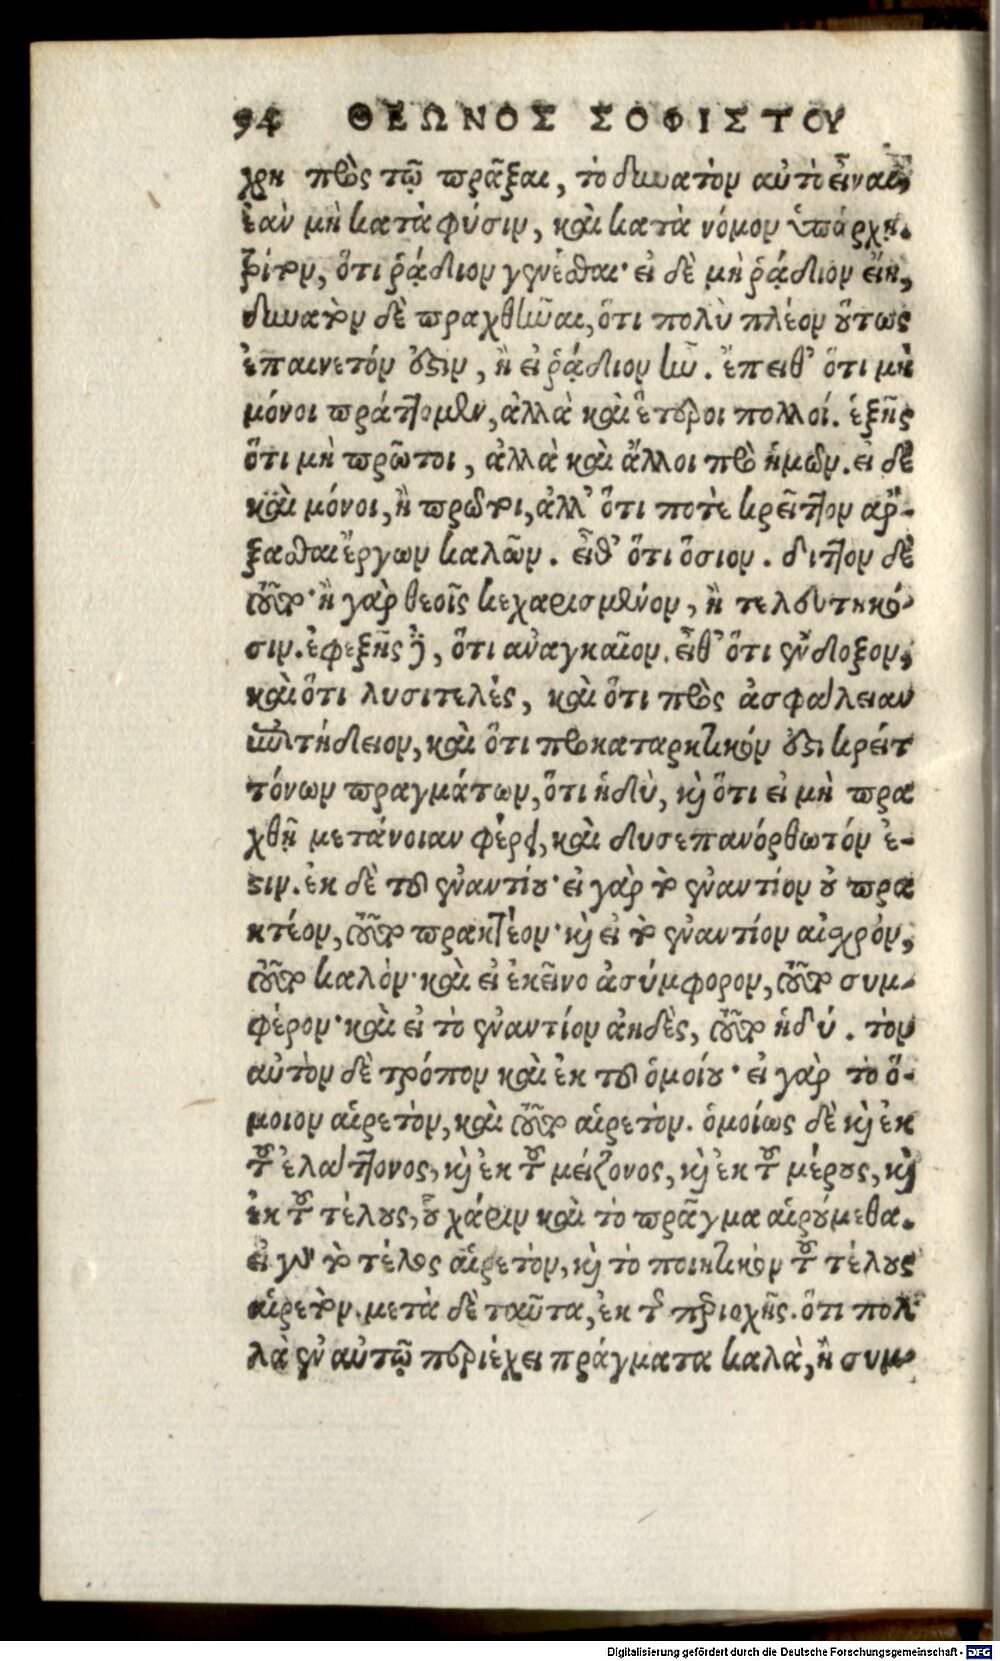 94 ΘΕΩΝΟΣ ΣΟΦΙΣΤΟΥ
χῃ πρὸς τῷ πρᾶξαι, τὸ δυνατὸν αὐτὸ εἶναι,
ἐὰν μὴ κατὰ φύσιν, καὶ κατὰ νόμον ὑπάρχῃ.
τρίτον, ὅτι ῥᾴδιον γενέσθαι· εἰ δὲ μὴ ῥᾴδιον εἴη,
δυνατὸν δὲ πραχθῆναι, ὅτι πολὺ πλέον οὕτως
ἐπαινετόν ἐστιν, ἢ εἰ ῥᾴδιον ἦν. ἔπειθ' ὅτι μὴ
μόνοι πράττομεν, ἀλλὰ καὶ ἕτεροι πολλοί. ἑξῆς
ὅτι μὴ πρῶτοι, ἀλλὰ καὶ ἄλλοι πρὸ ἡμῶν. εἰ δὲ
καὶ μόνοι, ἢ πρῶτοι, ἀλλ' ὅτι ποτὲ κρεῖττον ἄρ-
ξασθαι ἔργων καλῶν. εἶθ' ὅτι ὅσιον. διττὸν δὲ
τοῦτο· ἢ γὰρ θεοῖς κεχαρισμένον, ἢ τελευτηκό-
σιν. ἐφεξῆς δὲ, ὅτι ἀναγκαῖον. εἶθ' ὅτι ἔνδοξον,
καὶ ὅτι λυσιτελές, καὶ ὅτι πρὸς ἀσφάλειαν
ἐπιτήδειον, καὶ ὅτι προκαταρκτικόν ἐστι κρειτ
τόνων πραγμάτων, ὅτι ἡδὺ, καὶ ὅτι εἰ μὴ πρα
χθῇ μετάνοιαν φέρει, καὶ δυσεπανόρθωτόν ἐ-
στιν. ἐκ δὲ τοῦ ἐναντίου· εἰ γὰρ τὸ ἐναντίον οὐ πρα
κτέον, τοῦτο πρακτέον· καὶ εἰ τὸ ἐναντίον αἰσχρόν,
τοῦτο καλὸν· καὶ εἰ ἐκεῖνο ἀσύμφορον, τοῦτο συμ-
φέρον· καὶ εἰ τὸ ἐναντίον ἀηδὲς, τοῦτο ἡδύ. τὸν
αὐτὸν δὲ τρόπον καὶ ἐκ τοῦ ὁμοίου· εἰ γὰρ τὸ ὅ-
μοιον αἱρετὸν, καὶ τοῦτο αἱρετὸν. ὁμοίως δὲ καὶ ἐκ
τοῦ ἐλάττονος, καὶ ἐκ τοῦ μείζονος, καὶ ἐκ τοῦ μέρους, καὶ
ἐκ τοῦ τέλους, οὗ χάριν καὶ τὸ πρᾶγμα αἱρούμεθα.
εἰ γὰρ τὸ τέλος αἱρετὸν, καὶ τὸ ποιητικὸν τοῦ τέλους
αἱρετὸν. μετὰ δὲ ταῦτα, ἐκ τῆς περιοχῆς. ὅτι πολ
λὰ ἐν αὐτῷ περιέχει πράγματα καλὰ, ἢ συμ-
Digitalisierung gefördert durch die Deutsche Forschungsgemeinschaft - DFG